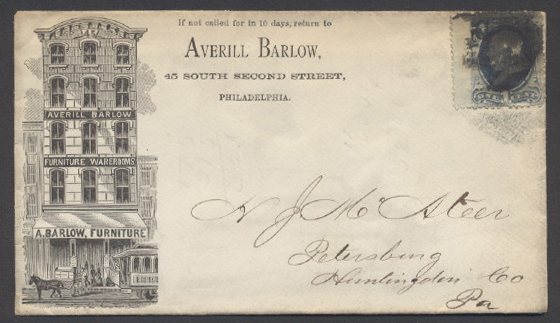 If not called for in 10 days, return to
AVERILL BARLOW,
45 SOUTH SECOND STREET,
PHILADELPHIA.
AVERILL BARLOW
FURNITURE WAREROOMS
A. BARLOW, FURNITURE
N J McAteer
Petersburg
Huntingdon Co
Pa